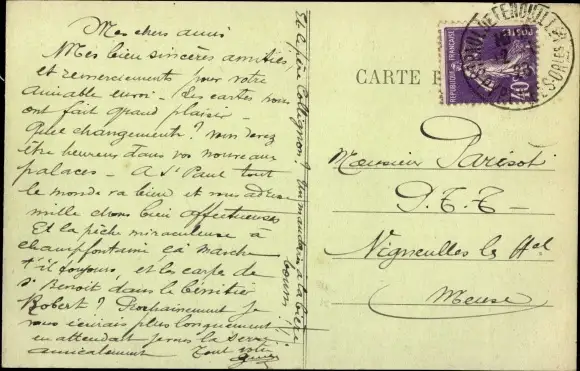 Mes chers amis
Mes bien sincères amitiés,
et remerciements pour votre
aimable envoi - Les cartes nous
ont fait grand plaisir -
Quel changement ? vous devez
être heureux dans vos nouveaux
palaces - A St Paul tout
le monde va bien et vous adresse
mille choses bien affectueuses
Et la pêche miraculeuse à
champfontaine, ça marche
t'il toujours, et les carpe de
St Benoit dans le bénitier
Robert ? Prochainement je
vous écrirais plus longuement
en attendant je vous la serre
amicalement Tout
Et à la Collignon ?
la bière
CARTE
REPUBLIQUE FRANÇAISE
POSTES
40c
DE FENOUILLET
Monsieur Parisot
P.T.T -
Vigneulles les Htel
Meuse